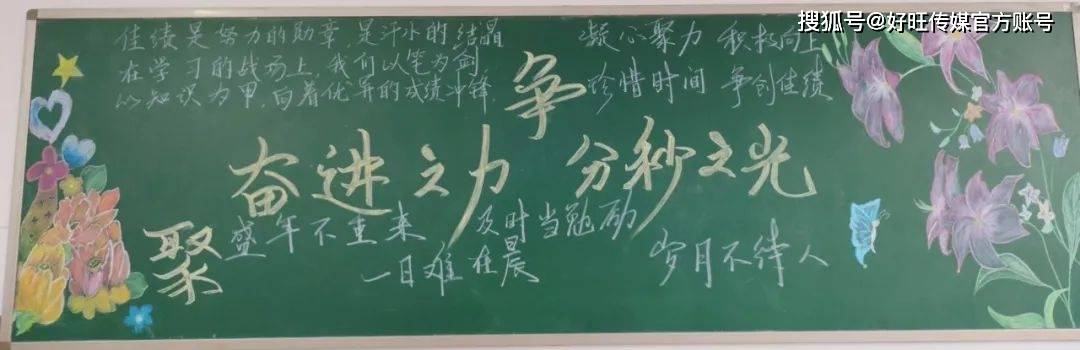 搜狐号@好旺传媒官方账号
佳绩是努力的勋章,是汗水的结晶
在学习的战场上,我们以笔为剑
以知识为甲,向着优异的成绩冲锋.
凝心聚力 积极向上
珍惜时间 争创佳绩
聚
奋进之力
争
分秒之光
盛年不重来
一日难在晨
及时当勉励
岁月不待人